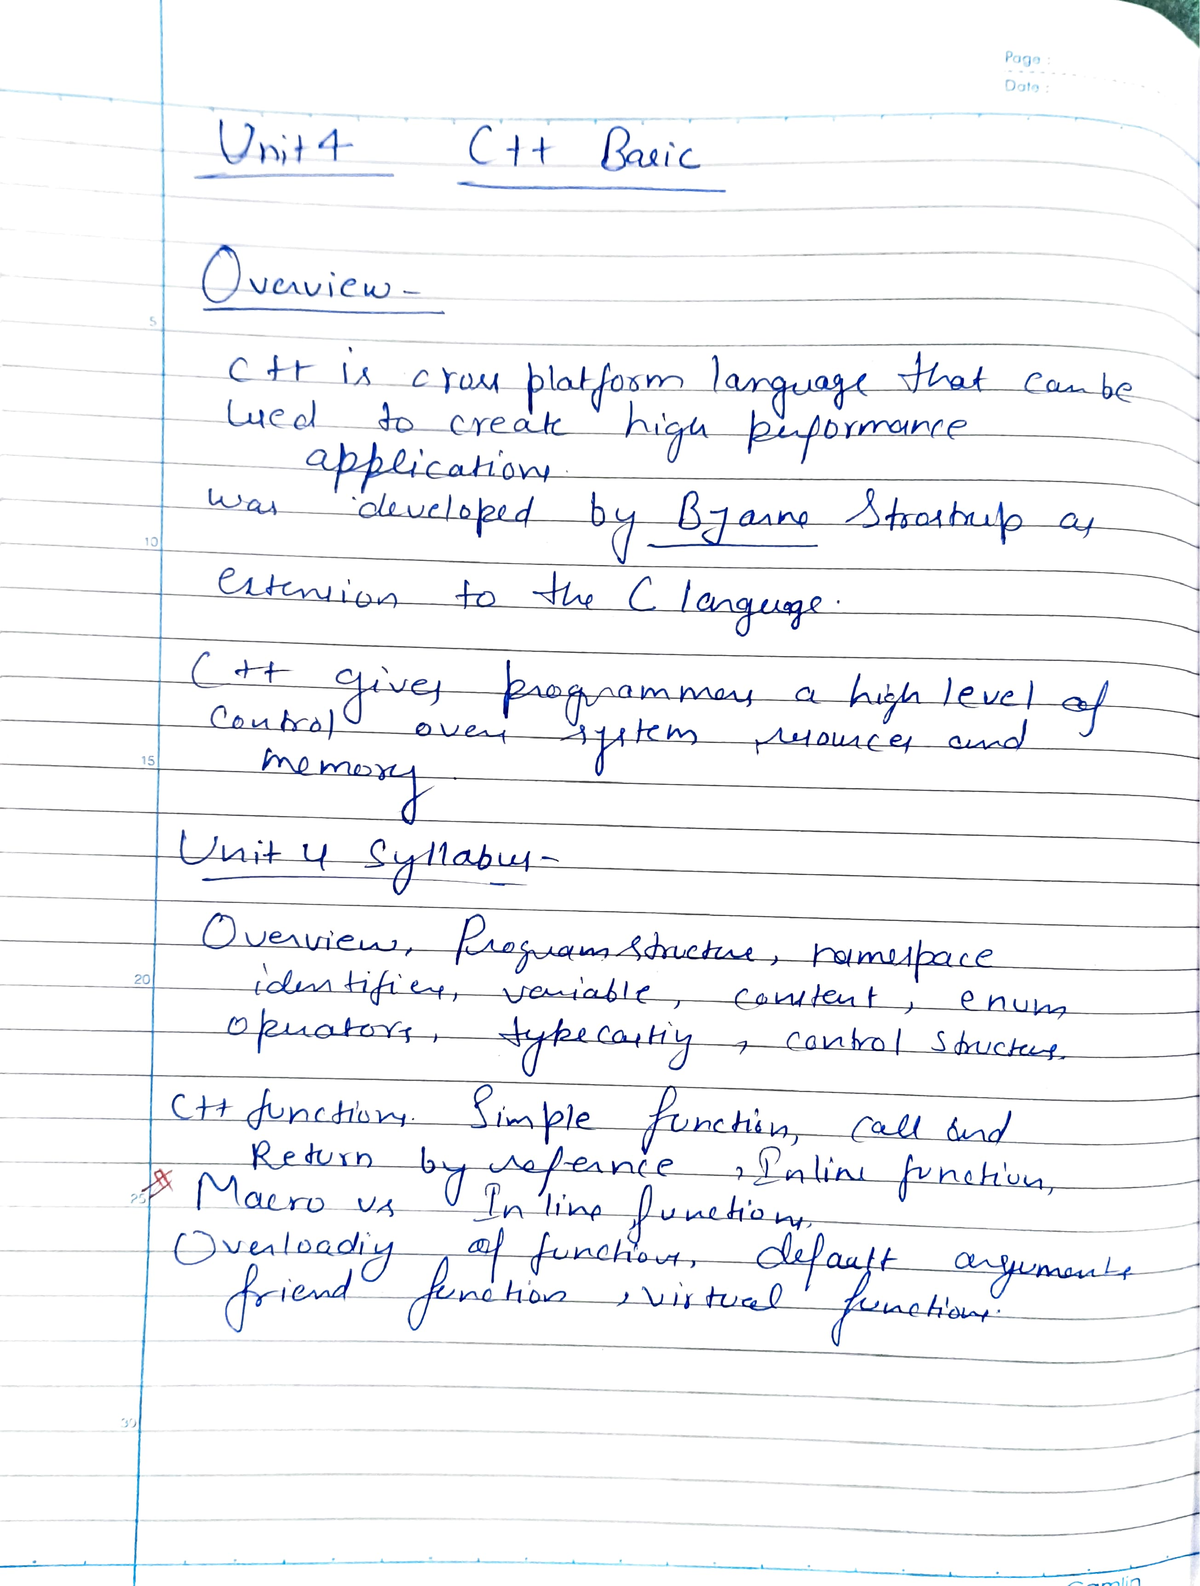 Page :
Date :
Unit 4 C++ Basic
Overview -
5
C++ is cross platform language that can be
used to create high performance
applications.
was developed by Bjarne Strostrup as
10
extension to the C language.
C++ gives programmers a high level of
control over system resources and
15
memory.
Unit 4 Syllabus -
Overview, Program structure, namespace
20
identifiers, variable, constent, enum,
operators, typecasting, control structure.
C++ functions. Simple function, call and
Return by refernce, Inline function,
25
# Macro vs In line functions,
Overloading of functions, default arguments
friend function, virtual functions.
30
Camlin